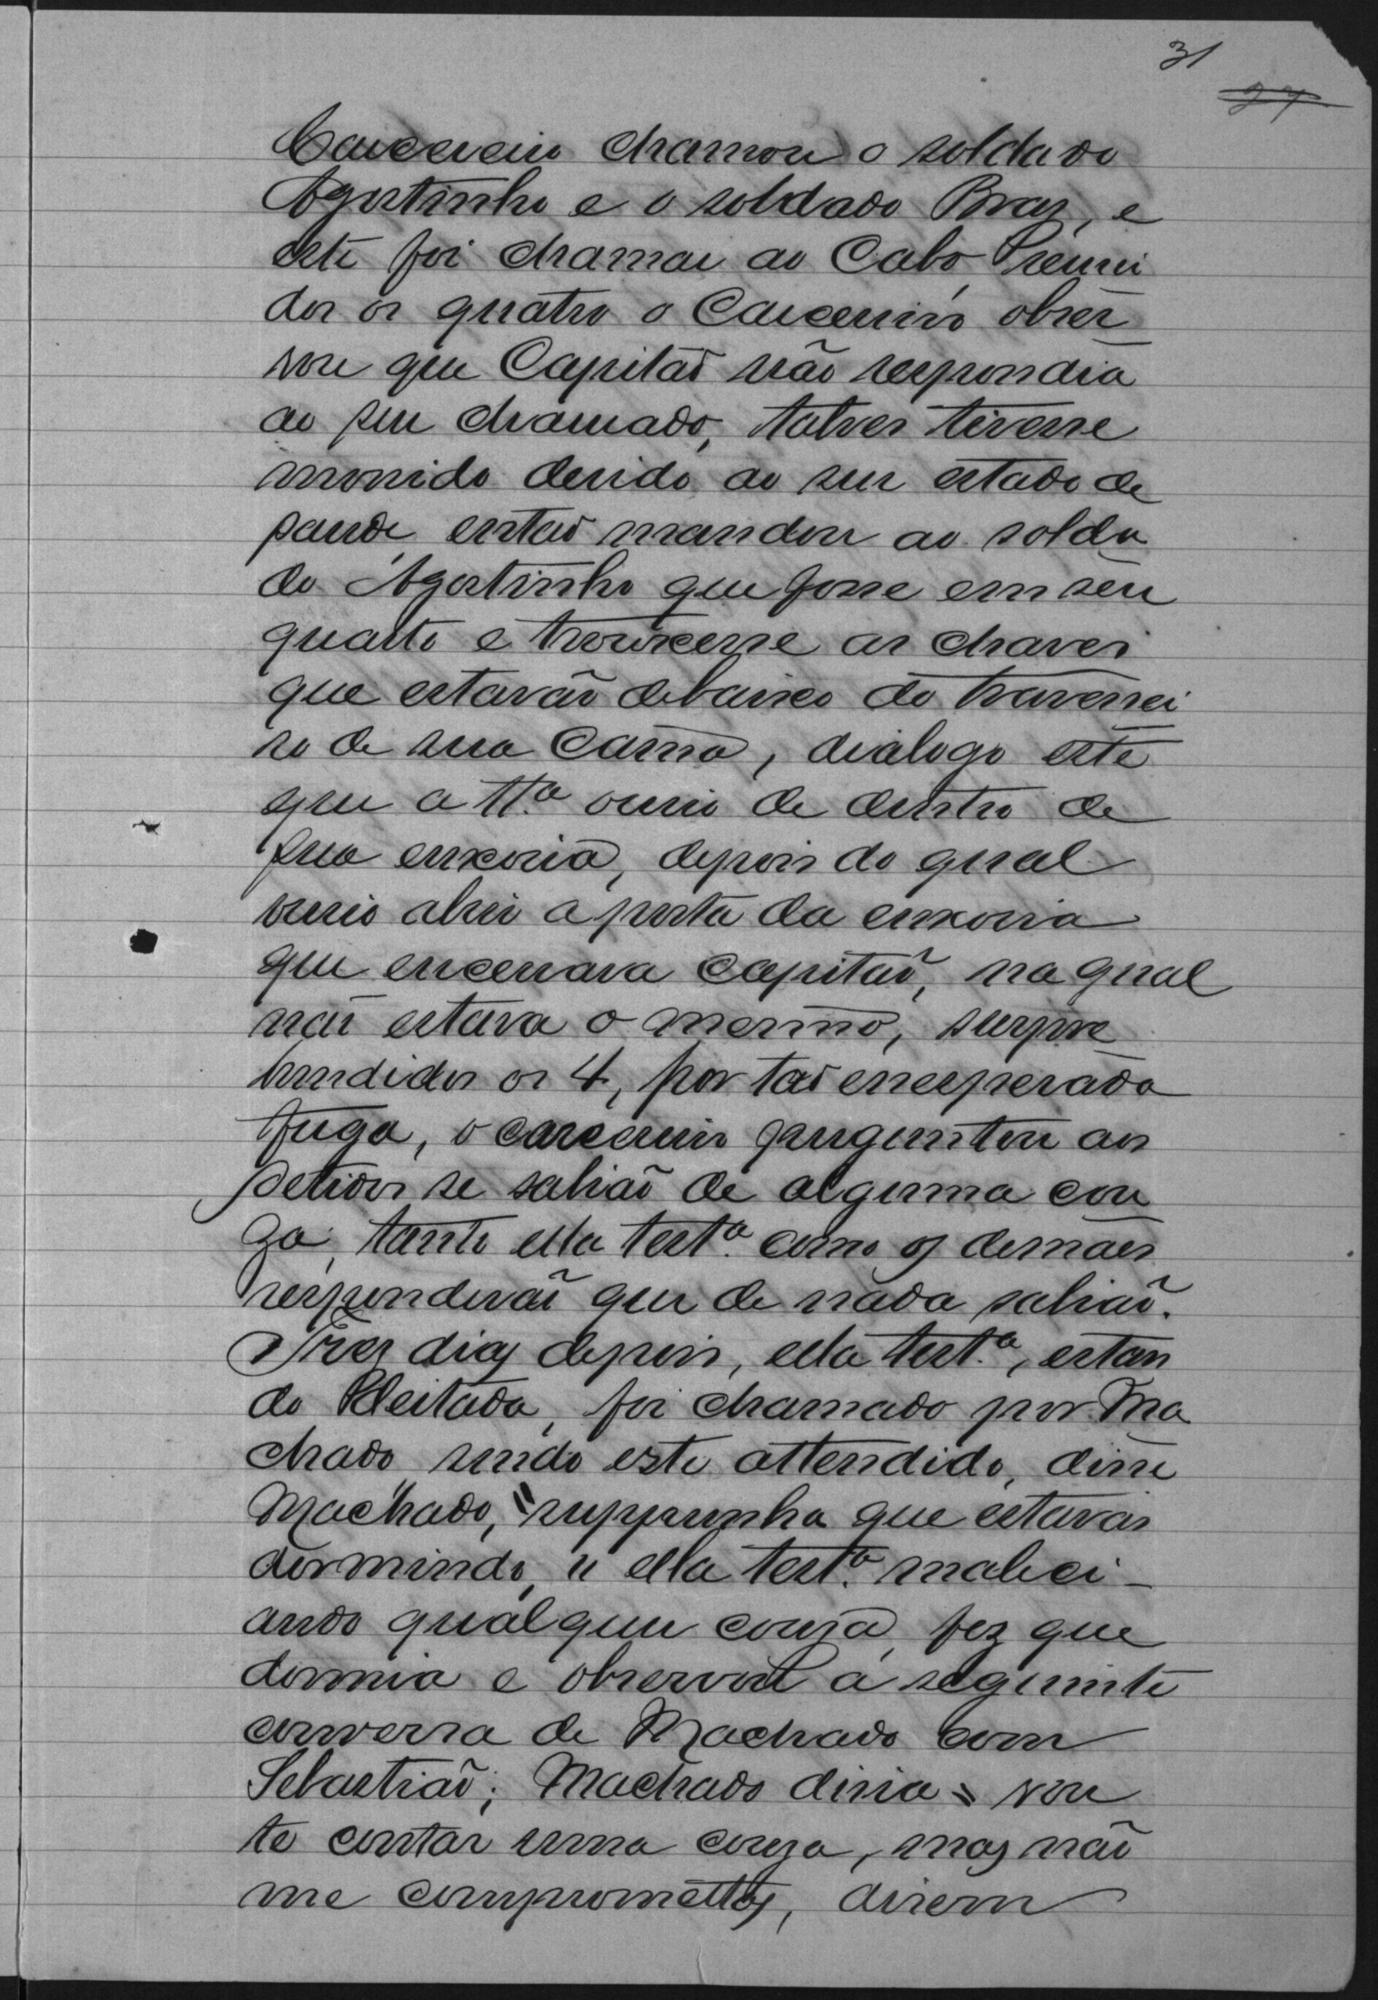 31
27
Carcereiro chamou o soldado
Agostinho e o soldado Braz, e
este foi chamar ao Cabo, Reuni
dos os quatro o Carcereiro obser
vou que Capitaõ não respondia
ao seu chamado, talves tivesse
morrido devido ao seu estado de
saude, entaõ mandou ao solda
do Agostinho que fosse em seu
quarto e trouxesse as chaves
que estavaõ debaixo do travessei
ro de sua cama, dialogo este
que a tt.ª ouvio de dentro de
sua enxovia, depois do qual
ouvio abrir a porta da enxovia
que encerrava Capitaõ, na qual
naõ estava o mesmo, surpre
hendidos os 4, por taõ enesperada
fuga, o carcereiro perguntou aos
detidos se sabiaõ de alguma cou
za, tanto ella test.ª como os demães
responderaõ que de nada sabiaõ.
Trez dias depois, ella test.ª, estan
do deitada, foi chamado por Ma
chado sendo este attendido, disse
Machado, "suppunha que estavas
dormindo," ella test.ª malici-
ando qualquer couza, fez que
dormia e observou a seguinte
conversa de Machado com
Sebastiaõ; Machado disia = vou
te contar uma couza, mas naõ
me compromettas, disem